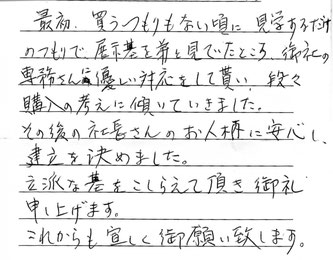 最初、買うつもりもない頃に見学するだけ
のつもりで展示墓を見ていたところ、御社の
専務さんに優しい対応をして貰い、段々
購入の考えに傾いていきました。
その後の社長さんのお人柄に安心し、
建立を決めました。
立派な墓をこしらえて頂き御礼
申し上げます。
これからも宜しく御願い致します。